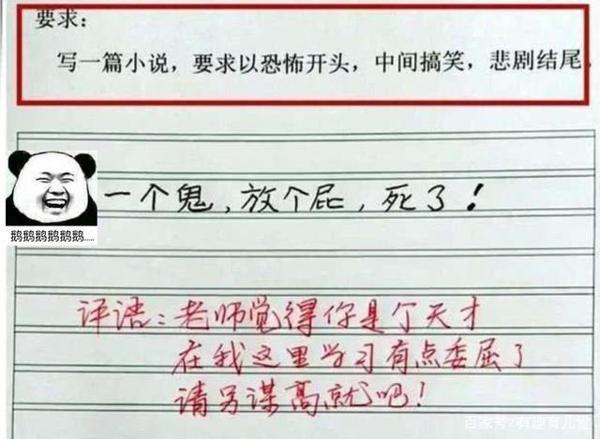 要求:
写一篇小说，要求以恐怖开头，中间搞笑，悲剧结尾。
一个鬼，放个屁，死了！
鹅鹅鹅鹅鹅鹅......
评语：老师觉得你是个天才
在我这里学习有点委屈了
请另谋高就吧！
百家号/有趣育儿堂